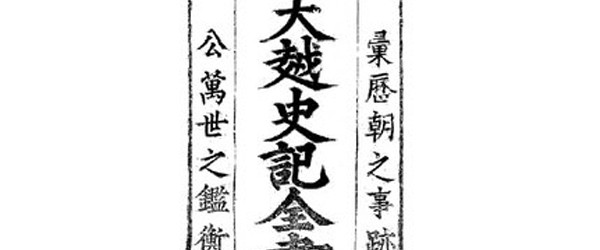 彙歷朝之事跡
大越史記全書
公萬世之鑑衡